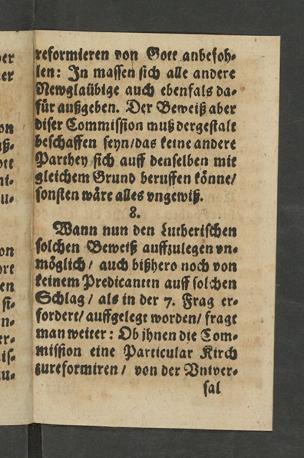 reformieren von Gott anbefoh-
len: In massen sich alle andere
Newglaübige auch ebenfals da-
für außgeben. Der Beweiß aber
diser Commission muß dergestalt
beschaffen seyn/das keine andere
Parthey sich auff denselben mit
gleichem Grund beruffen könne/
sonsten wäre alles vngewiß.
8.
Wann nun den Lutherischen
solchen Beweiß auffzulegen vn-
möglich/ auch bißhero noch von
keinem Predicanten auff solchen
Schlag/ als in der 7. Frag er-
fordert/ auffgelegt worden/ fragt
man weiter: Ob jhnen die Com-
mission eine Particular Kirch
zureformiren/ von der Vniver-
sal